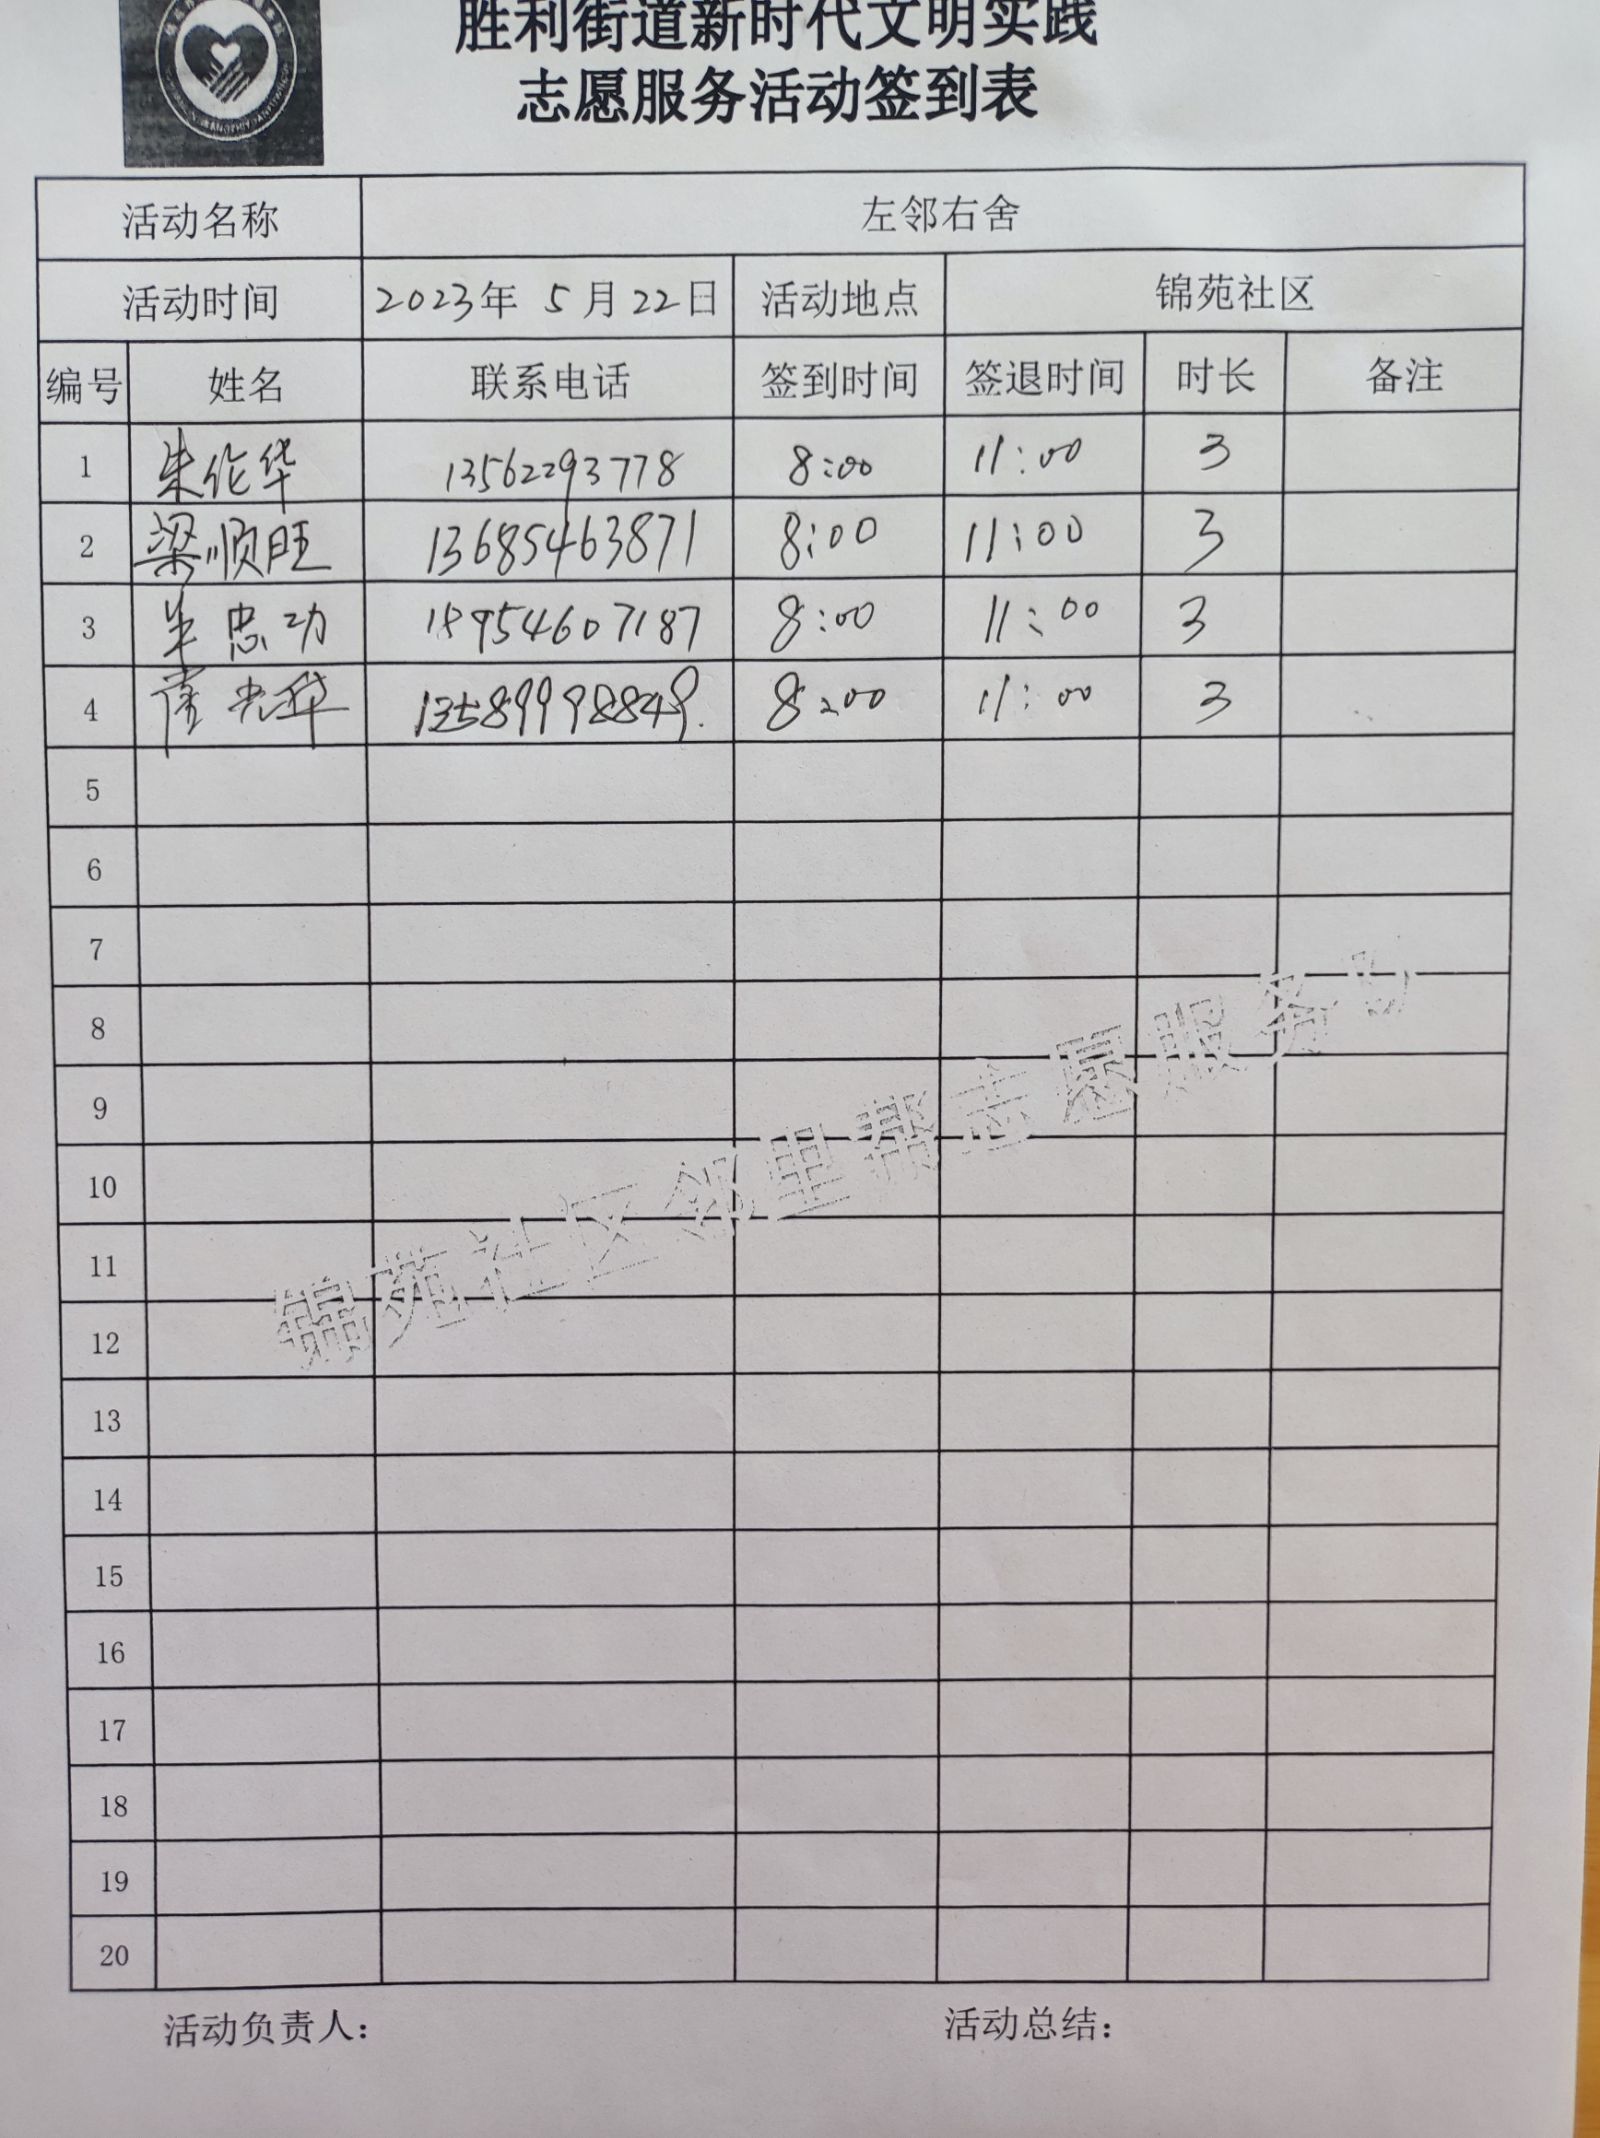 胜利街道新时代文明实践
志愿服务活动签到表
活动名称 左邻右舍
活动时间 2023年 5月22日 活动地点 锦苑社区
编号 姓名 联系电话 签到时间 签退时间 时长 备注
1 朱伦华 13562293778 8:00 11:00 3
2 梁顺旺 13685463871 8:00 11:00 3
3 忠功 18954607187 8:00 11:00 3
4 13589998849. 8:00 11:00 3
5
6
7
8
9
10
11
12
13
14
15
16
17
18
19
20
锦苑社区邻里帮志愿服务
活动负责人： 活动总结：